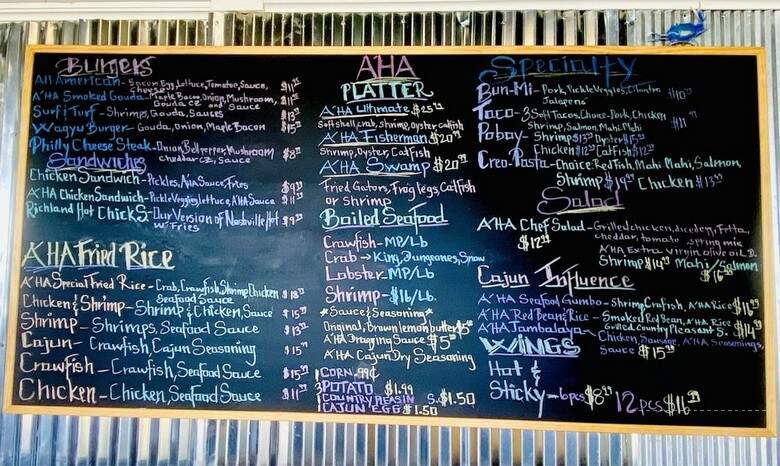 Burgers
All American - Bacon Egg, Lettuce, Tomatoe, Sauce, $11
Cheese
A'HA Smoked Gouda - Maple Bacon, Onion, Mushroom, $11
Gouda CZ and Sauce
Surf & Turf - Shrimps, Gouda, Sauces $13
Wagyu Burger - Gouda, Onion, Maple Bacon $15
Philly Cheese Steak - Onion, Bell pepper, Mushroom $8
cheddar CZ, Sauce
Sandwiches
Chicken Sandwich - Pickles, A'HA Sauce, Fries $9
A'HA Chicken Sandwich - Pickle Veggies, Lettuce, A'HA Sauce $11
Richland Hot Chick S - Our Version of Nashville Hot $9
w/ Fries
A'HA Fried Rice
A'HA Special Fried Rice - Crab, Crawfish, Shrimp, Chicken
Seafood Sauce
Chicken & Shrimp - Shrimp & Chicken, Sauce $15
Shrimp - Shrimps, Seafood Sauce $13
Cajun - Crawfish, Cajun Seasoning $15
Crawfish - Crawfish, Seafood Sauce $15
Chicken - Chicken, Seafood Sauce $11
A'HA
PLATTER
A'HA Ultimate $25
Softshell crab, shrimp, oyster, catfish
A'HA Fisherman $20
Shrimp, Oyster, Catfish
A'HA Swamp $20
Fried Gators, Frog legs, Catfish
or Shrimp
Boiled Seafood
Crawfish - MP/Lb
Crab - King, Dungeones, Snow
Lobster - MP/Lb
Shrimp - $16/Lb.
*Sauce & Seasoning*
Original, Brown lemon butter $5
A'HA Dragging Sauce $5
A'HA Cajun Dry Seasoning
1 CORN .99¢
3 POTATO $1.99
1 COUNTRY PLEASIN S. $1.50
1 CAJUN EGG $1.50
Specialty
Bun-Mi - Pork, Pickle Veggies, Cilantro $10
Jalapeno
Taco - 3 Soft Tacos, Choice - Pork, Chicken $11
Shrimp, Salmon, Mahi, Mahi
Poboy - Shrimp $13 Oyster $15
Chicken $12 Catfish $12
Creo. Pasta - Choice: Red Fish, Mahi Mahi, Salmon,
Shrimp $19 Chicken $13
Salad
A'HA Chef Salad - Grilled chicken, diced egg, Fetta,
$12 cheddar, tomato spring mix
A'HA Extra Virgin olive oil D.
Shrimp $14 Mahi/Salmon
$16
Cajun Influence
A'HA Seafood Gumbo - Shrimp Crafish, A'HA Rice $16
A'HA Red Bean & Rice - Smoked Red Bean, A'HA Rice $14
Grilled Country Pleasant S.
A'HA Jambalaya - Chicken, Sausage, A'HA Seasonings,
Sauce $15
WINGS
Hot &
Sticky - 6pcs $8 12 pcs $16